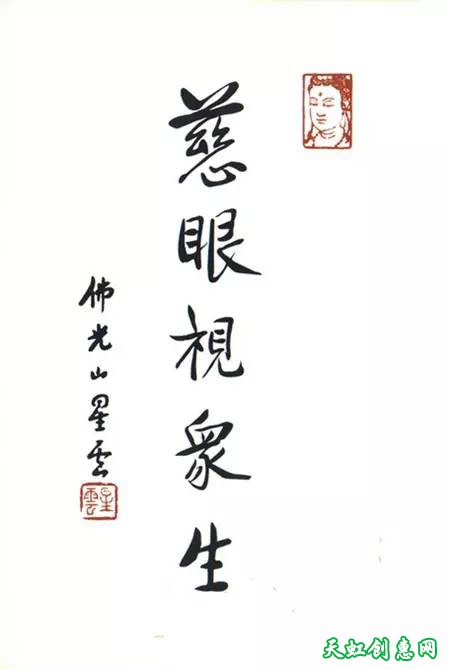 慈眼視眾生
佛光山星雲
星雲
天虹创意网